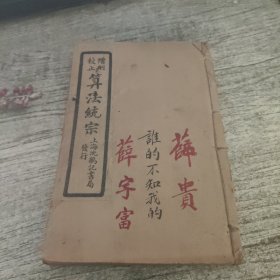 薛貴
誰的不知我的
薛字富
增刪
校正
算法統宗
上海沈鶴記書局
發行